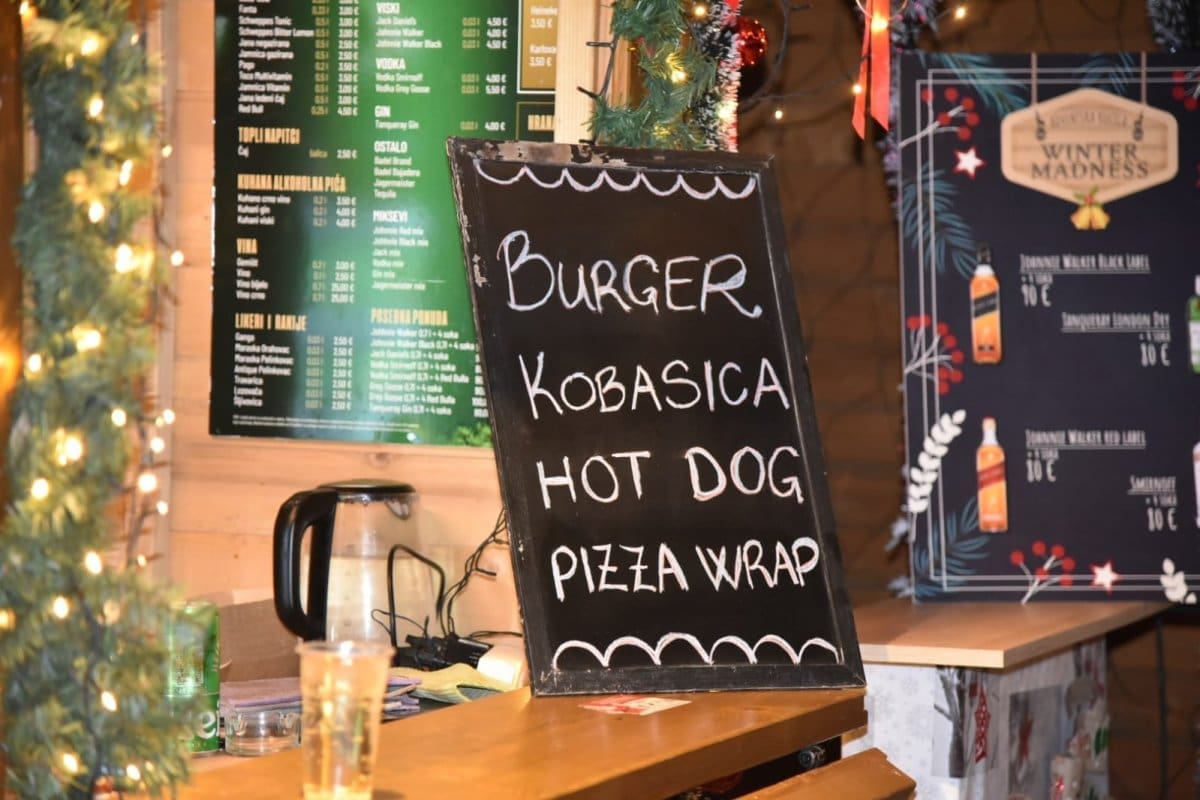 Fanta 0,3 l 3,00 €
Schweppes Tonic
Schweppes Bitter Lemon
Jana negazirana
Jamnica gazirana
Pago
Toco Multivitamin
Jamnica Vitamin
Jana ledeni čaj
Red Bull 0,25 l 4,50 €
TOPLI NAPITCI
Čaj šalica 2,50 €
KUHANA ALKOHOLNA PIĆA
Kuhano crno vino 0,2 l 3,50 €
Kuhani gin 0,2 l 4,00 €
Kuhani viski 0,2 l 4,00 €
VINA
Gemišt 0,2 l 3,00 €
Vino 0,1 l 2,50 €
Vino bijelo 0,7 l 25,00 €
Vino crno 0,7 l 25,00 €
LIKERI I RAKIJE
Ganga 0,03 l 2,50 €
Maraska Orahovac 0,03 l 2,50 €
Maraska Pelinkovac 0,03 l 2,50 €
Antique Pelinkovac 0,03 l 2,50 €
Travarica 0,03 l 2,50 €
Lozovača 0,03 l 2,50 €
Šljivovica 0,03 l 2,50 €
VISKI
Jack Daniel's 0,03 l 4,50 €
Johnnie Walker 0,03 l 4,00 €
Johnnie Walker Black 0,03 l 4,50 €
VODKA
Vodka Smirnoff 0,03 l 4,00 €
Vodka Grey Goose 0,03 l 5,50 €
GIN
Tanqueray Gin 0,03 l 4,00 €
OSTALO
Badel Brand
Badel Bajadera
Jagermeister
Tequila
MIKSEVI
Johnnie Red mix
Johnnie Black mix
Jack mix
Vodka mix
Gin mix
Jagermeister mix
POSEBNA PONUDA
Johnnie Walker 0,7 l + 4 soka
Johnnie Walker Black 0,7 l + 4 soka
Jack Daniel's 0,7l + 4 soka
Vodka Smirnoff 0,7l + 4 soka
Vodka Smirnoff 0,7l + 4 Red Bulla
Grey Goose 0,7l + 4 soka
Grey Goose 0,7l + 4 Red Bulla
Tanqueray Gin 0,7l + 4 soka
Heineke
3,50 €
Karlova
3,00 €
HRANA
BURGER
KOBASICA
HOT DOG
PIZZA WRAP
WINTER
MADNESS
JOHNNIE WALKER BLACK LABEL
+ 4 SOKA
90 €
TANQUERAY LONDON DRY
+ 4 SOKA
JOHNNIE WALKER RED LABEL
+ 4 SOKA
80 €
SMIRNOFF
+ 4 SOKA